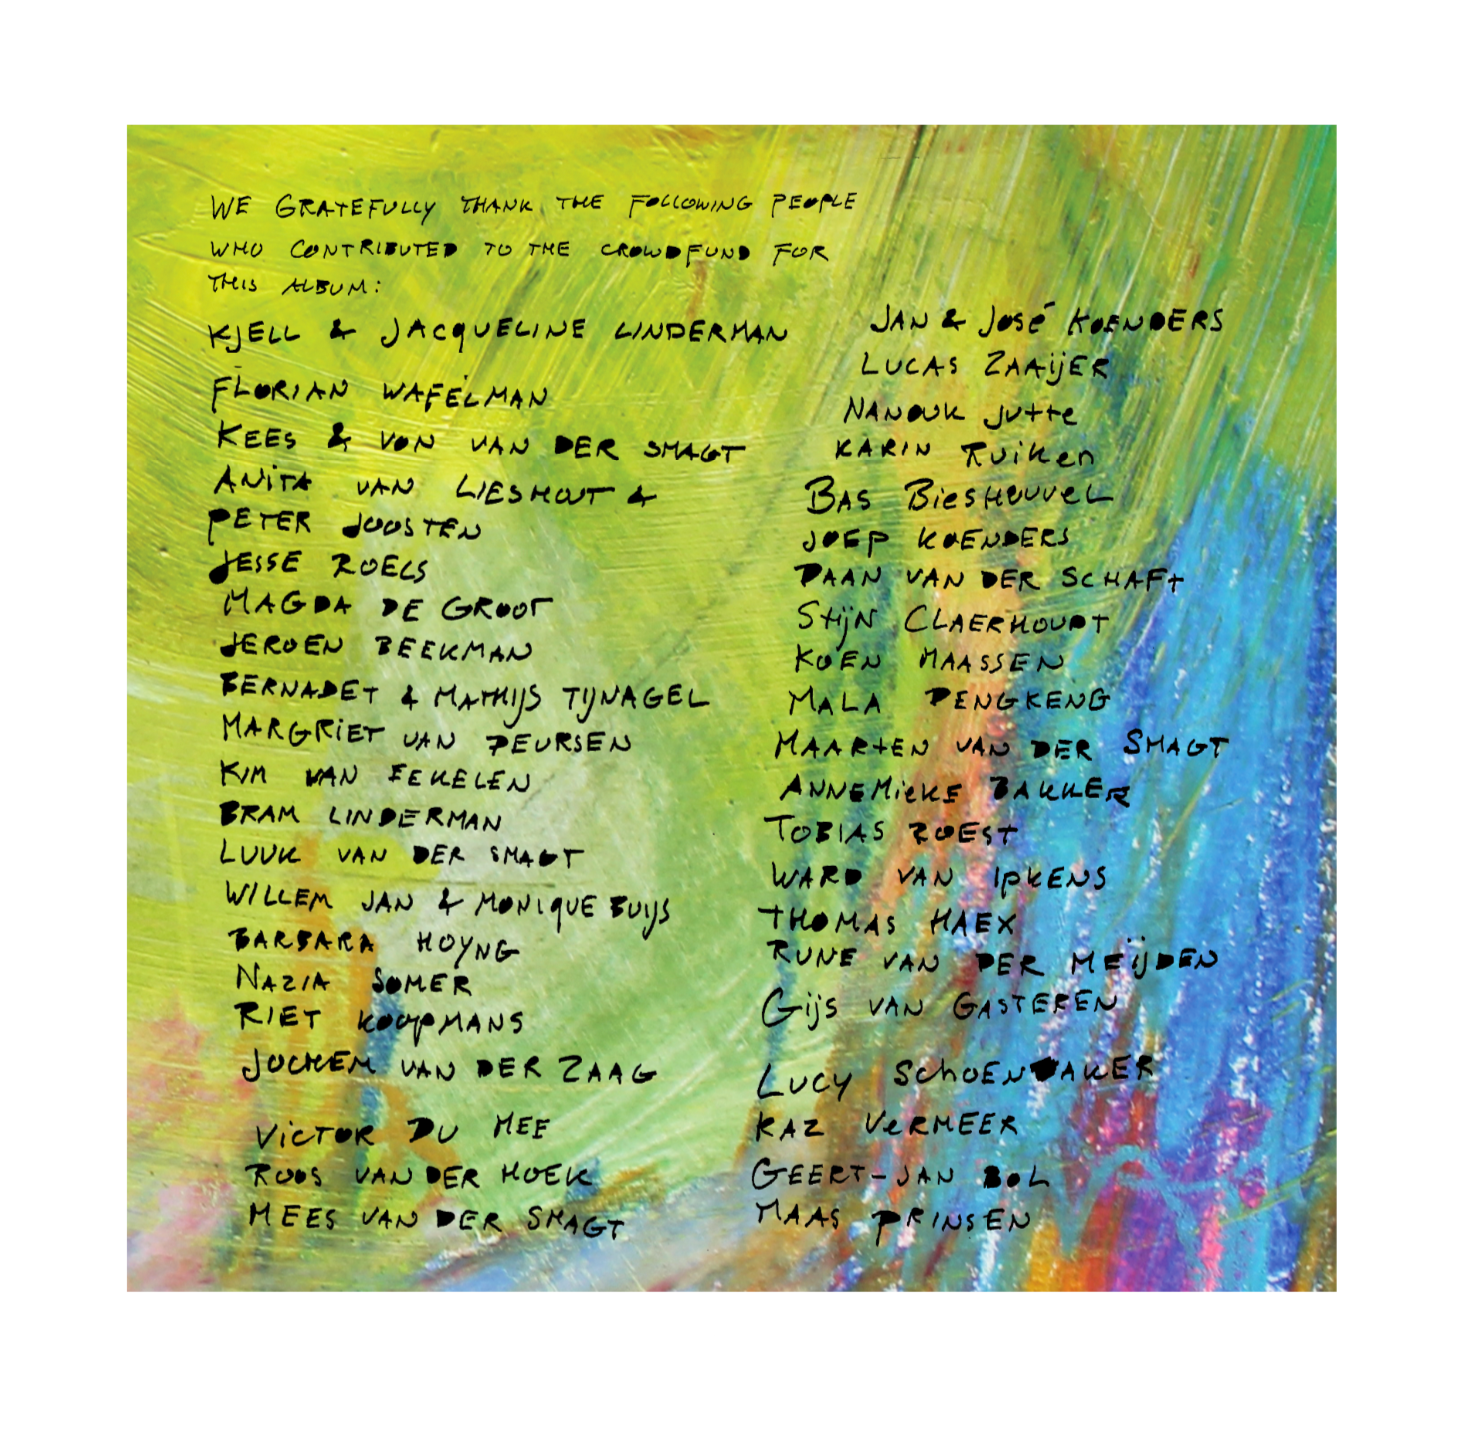 WE GRATEFULLY THANK THE FOLLOWING PEOPLE
WHO CONTRIBUTED TO THE CROWDFUND FOR
THIS ALBUM:
KJELL & JACQUELINE LINDERMAN
FLORIAN WAFELMAN
KEES & VON VAN DER SMAGT
ANITA VAN LIESHOUT &
PETER JOOSTEN
JESSE ROELS
MAGDA DE GROOT
JEROEN BEEKMAN
BERNADET & MATHIJS TIJNAGEL
MARGRIET VAN PEURSEN
KIM VAN EEKELEN
BRAM LINDERMAN
LUUK VAN DER SMAGT
WILLEM JAN & MONIQUE BUIJS
BARBARA HOYNG
NAZIA SOMER
RIET KOOPMANS
JOCHEM VAN DER ZAAG
VICTOR DU MEE
ROOS VAN DER HOEK
MEES VAN DER SMAGT
JAN & JOSÉ KOENDERS
LUCAS ZAAIJER
NANOUK Jutte
KARIN Ruiken
BAS BIESHEUVEL
JOEP KOENDERS
DAAN VAN DER SCHAFT
STIJN CLAERHOUDT
KOEN MAASSEN
MALA PENGKENG
MAARTEN VAN DER SMAGT
ANNEMIEKE BAKKER
TOBIAS ROEST
WARD VAN IPKENS
THOMAS HAEX
RUNE VAN DER MEIJDEN
GIJS VAN GASTEREN
LUCY SCHOENMAKER
KAZ VERMEER
GEERT-JAN BOL
MAAS PRINSEN